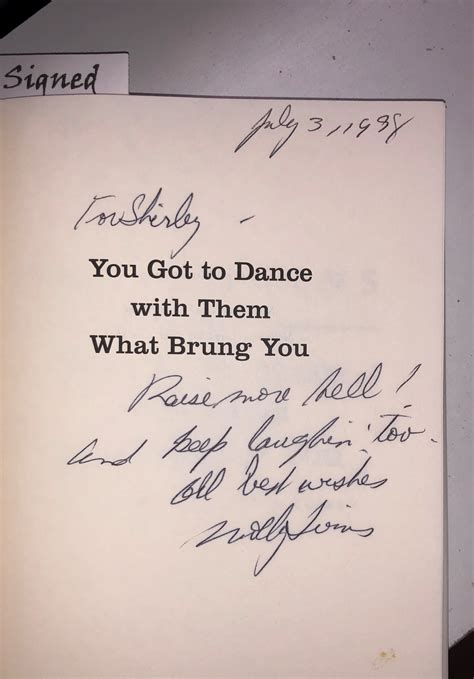 Signed
July 3, 1998
For Shirley -
You Got to Dance
with Them
What Brung You
Raise more hell!
and keep laughin' too.
All best wishes
Molly Ivins